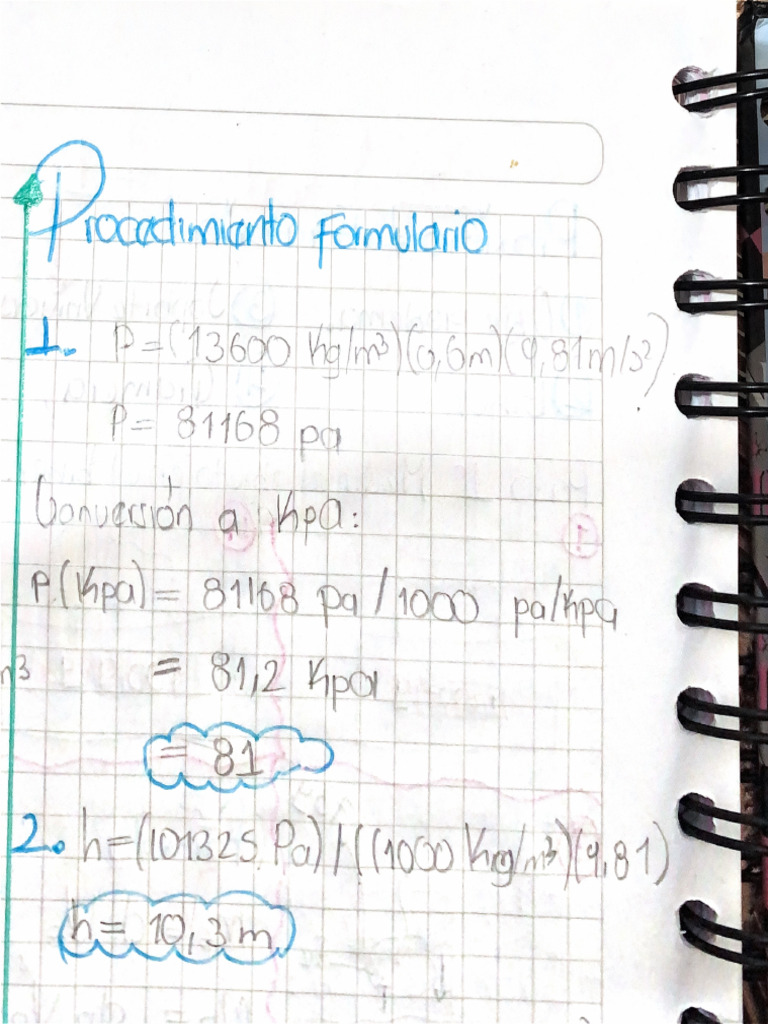 Procedimiento formulario
1. P=(13600 Kg/m³)(0,6m)(9,81m/s²)
P= 81168 pa
Conversión a Kpa:
P(Kpa)= 81168 pa/1000 pa/Kpa
= 81,2 Kpa
= 81
2. h=(101325 Pa)/((1000 Kg/m³)(9,81)
h= 10,3 m